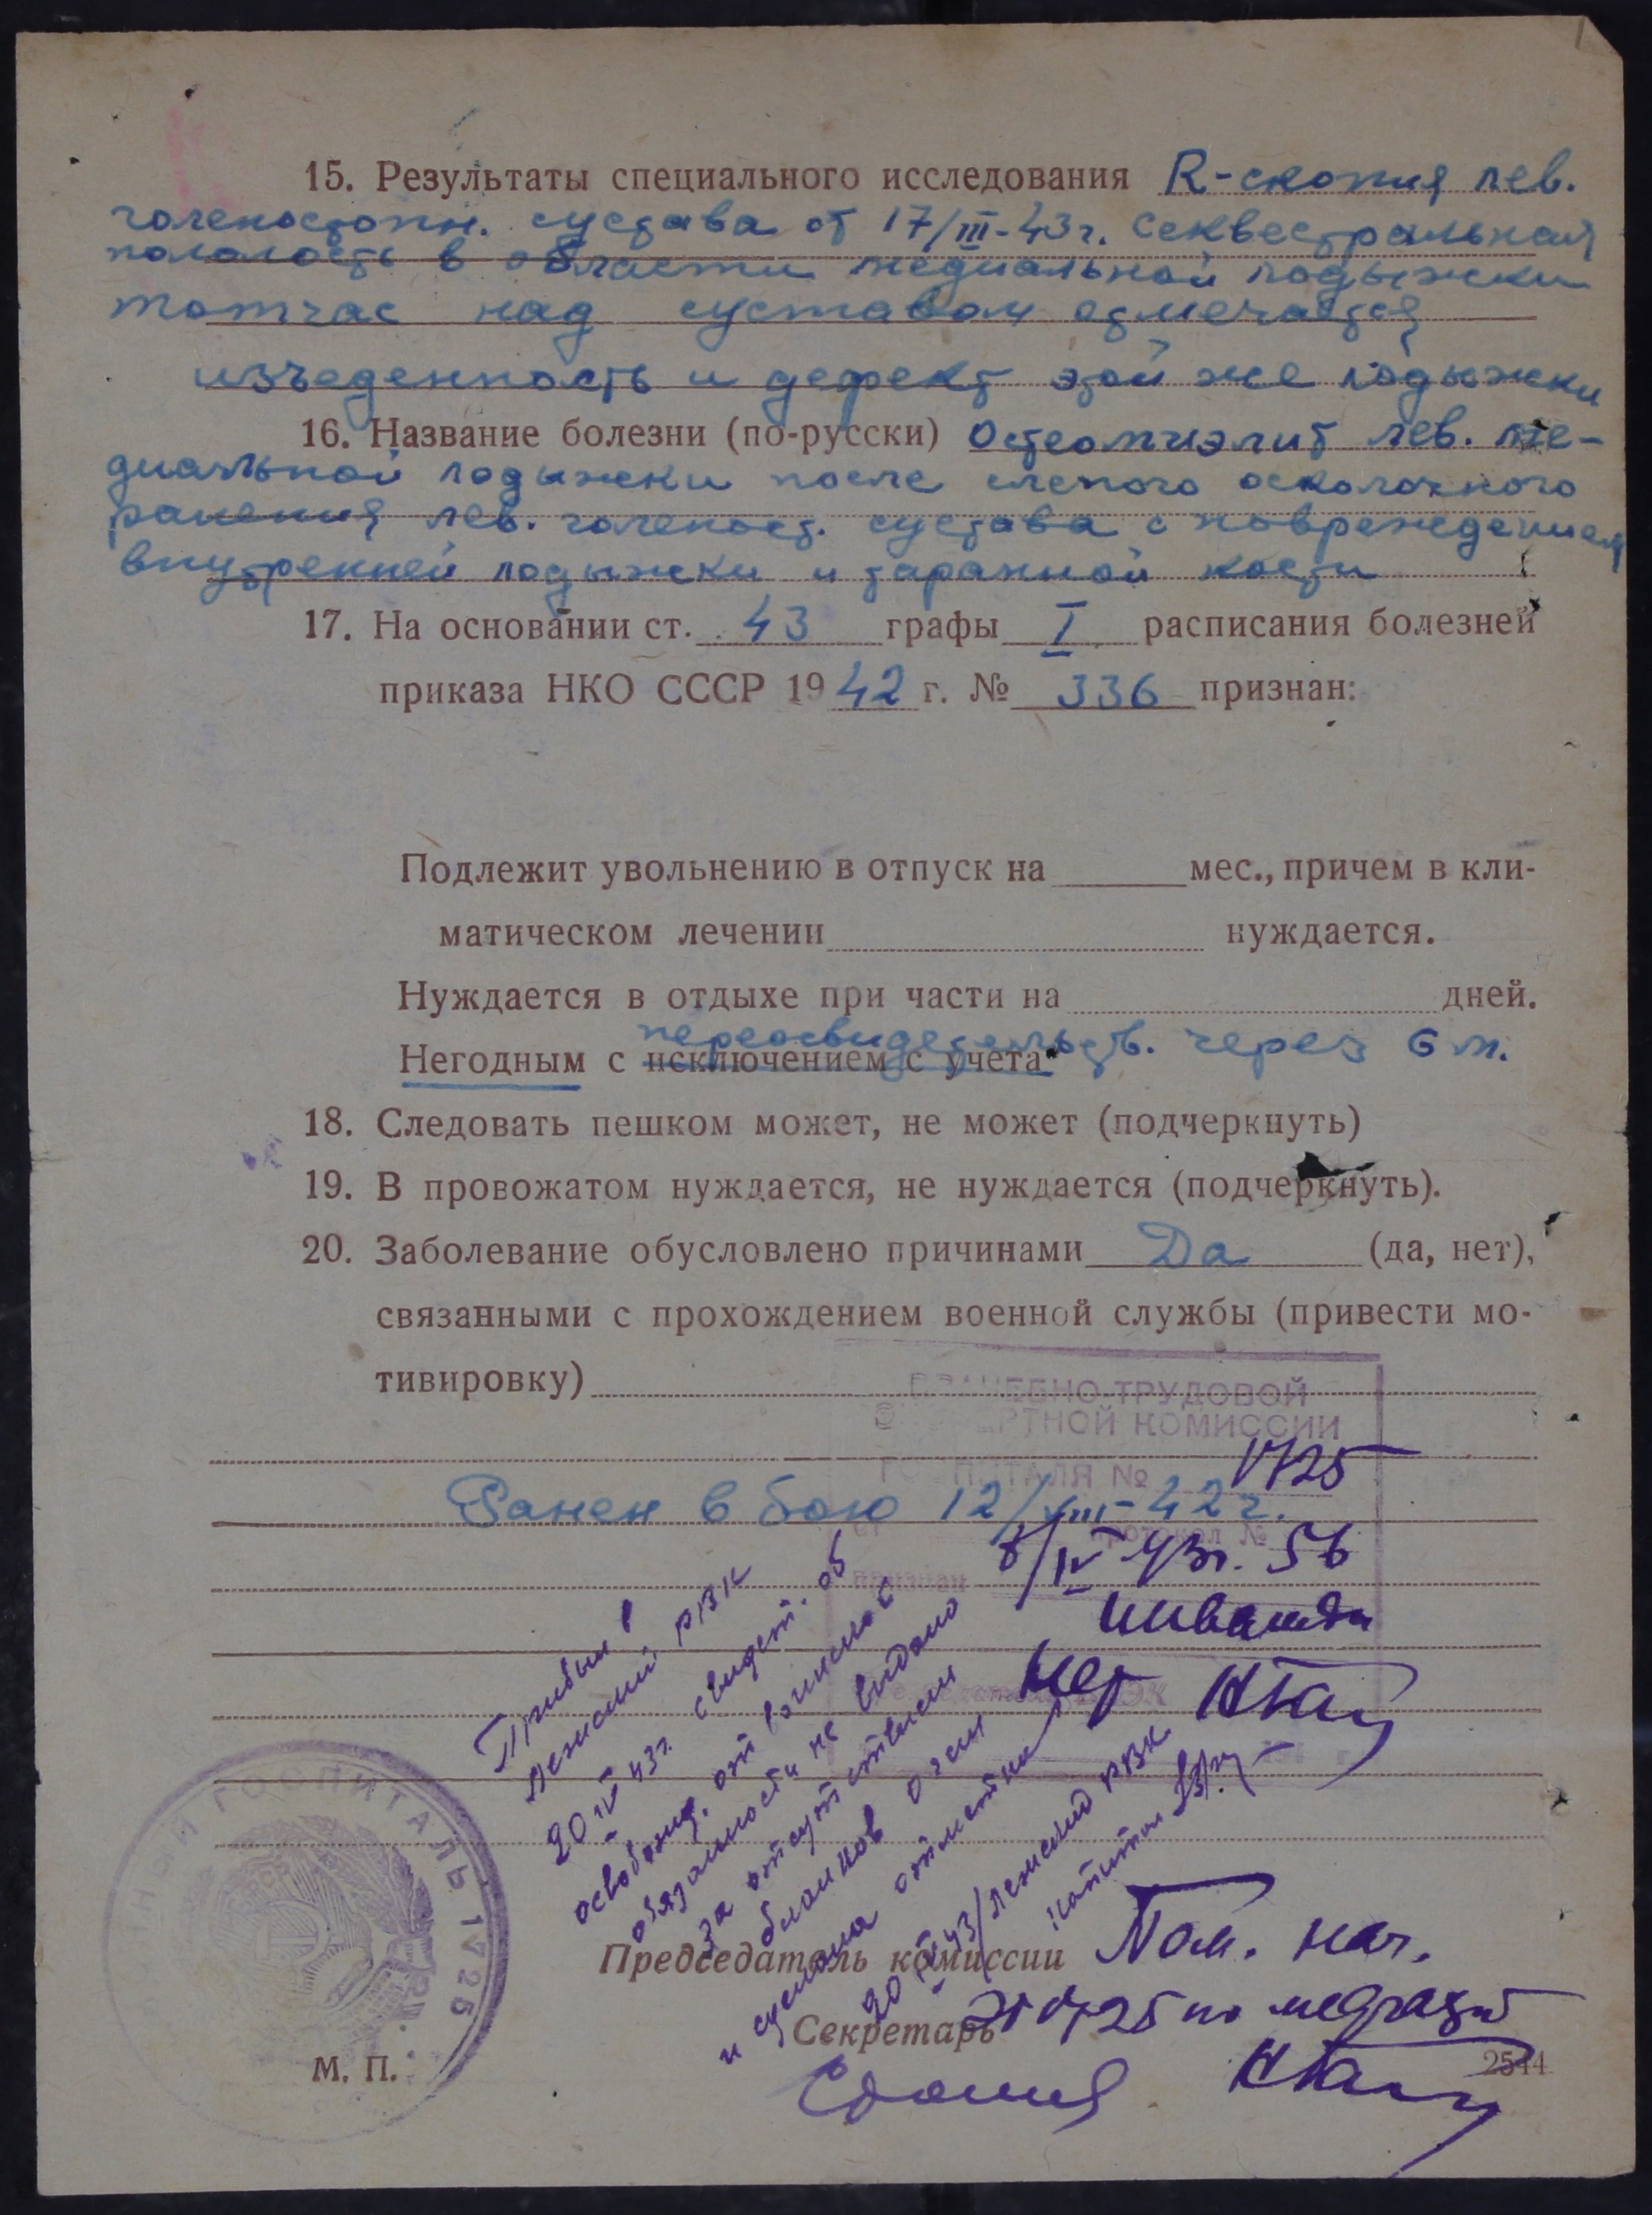 15. Результаты специального исследования R-скопия лев.
голеностопн. сустава от 17/III-43г. Секвестральная
полость в области медиальной лодыжки
тотчас над суставом отмечается
изъеденность и дефект этой же лодыжки
16. Название болезни (по-русски) Остеомиэлит лев. ме-
диальной лодыжки после слепого осколочного
ранения лев. голеност. сустава с повреждением
внутренней лодыжки и таранной кости
17. На основании ст. 43 графы I расписания болезней
приказа НКО СССР 1942 г. № 336 признан:
Подлежит увольнению в отпуск на мес., причем в кли-
матическом лечении нуждается.
Нуждается в отдыхе при части на дней.
переосвидетельств. через 6 м.
Негодным с исключением с учета
18. Следовать пешком может, не может (подчеркнуть)
19. В провожатом нуждается, не нуждается (подчеркнуть).
20. Заболевание обусловлено причинами Да (да, нет),
связанными с прохождением военной службы (привести мо-
тивировку)
ВРАЧЕБНО-ТРУДОВОЙ
ЭКСПЕРТНОЙ КОМИССИИ
ГОСПИТАЛЯ № 1725
Ранен в бою 12/VIII-42г.
протокол №
8/IV 43г. 56
признан
инвалидом
нет
Прибыл в
Ленский РВК
20 IV 43г. свидет. об
освобожд. от воинской
обязанности не выдано
за отсутствием
бланков
и сделана отметка
20 IV 43/Ленский РВК
капитан
ГОСПИТАЛЬ 1725
Председатель комиссии Пом. нач.
Секретарь ЭГ 1725 по медчасти
М. П.
2544